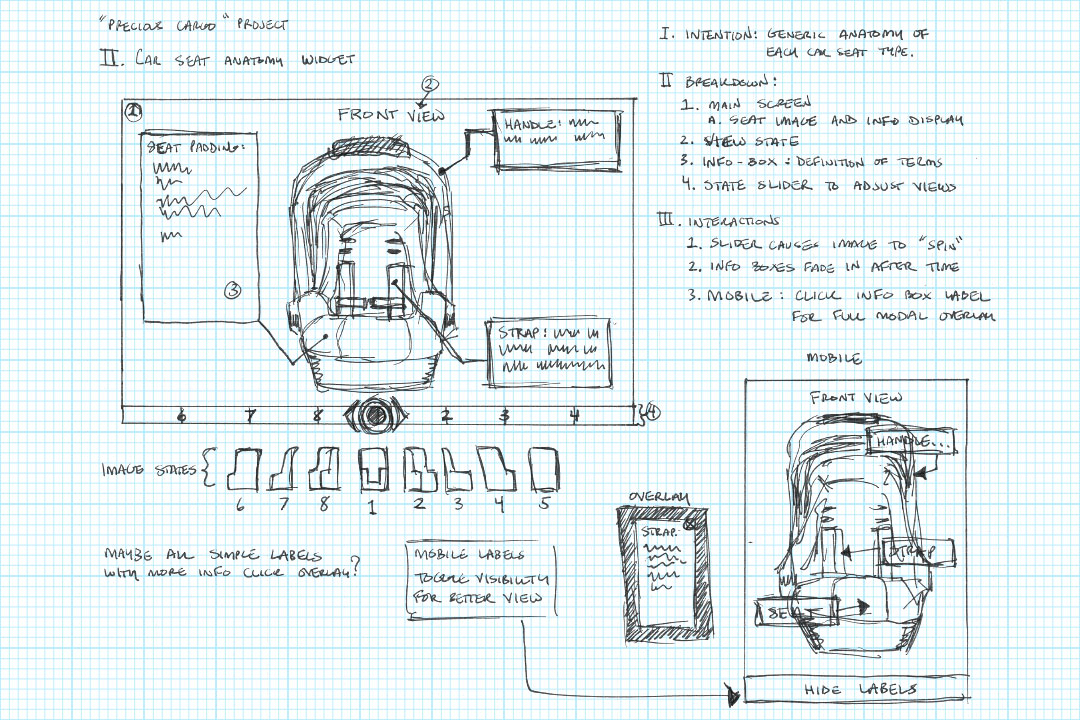 "PRECIOUS CARGO" PROJECT
II. CAR SEAT ANATOMY WIDGET
I. INTENTION: GENERIC ANATOMY OF
EACH CAR SEAT TYPE.
II BREAKDOWN:
1. MAIN SCREEN
A. SEAT IMAGE AND INFO DISPLAY
2. VIEW STATE
3. INFO-BOX: DEFINITION OF TERMS
4. STATE SLIDER TO ADJUST VIEWS
III. INTERACTIONS
1. SLIDER CAUSES IMAGE TO "SPIN"
2. INFO BOXES FADE IN AFTER TIME
3. MOBILE: CLICK INFO BOX LABEL
FOR FULL MODAL OVERLAY
2
1
FRONT VIEW
SEAT PADDING:
HANDLE:
3
STRAP:
6 7 8 2 3 4
4
IMAGE STATES
6 7 8 1 2 3 4 5
MAYBE ALL SIMPLE LABELS
WITH MORE INFO CLICK OVERLAY?
MOBILE LABELS
TOGGLE VISIBILITY
FOR BETTER VIEW
OVERLAY
STRAP.
MOBILE
FRONT VIEW
HANDLE...
STRAP
SEAT
HIDE LABELS